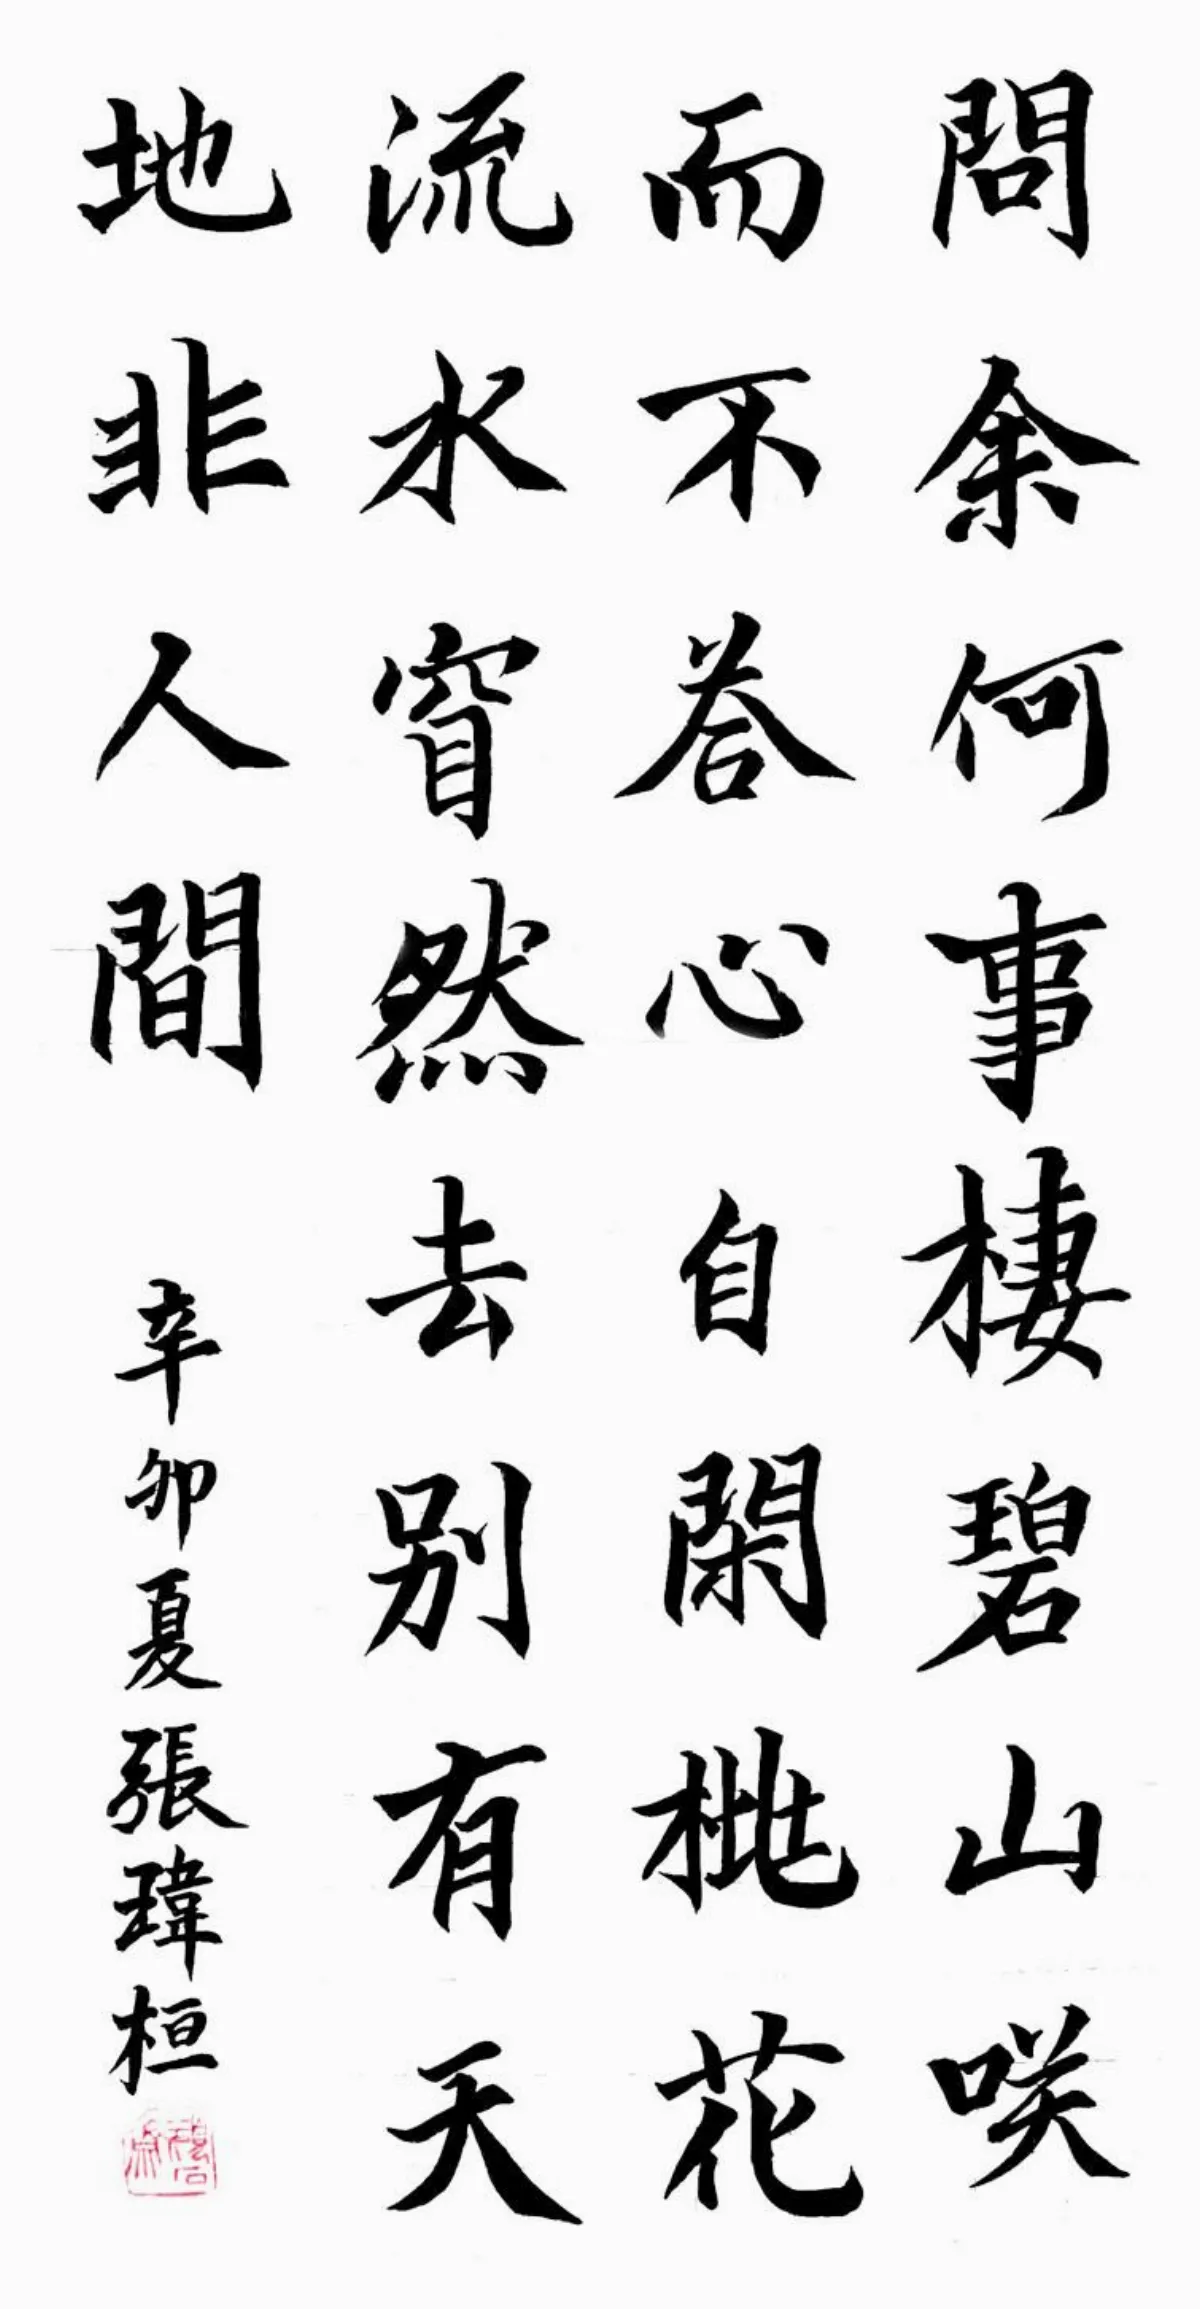 問余何事棲碧山咲
而不荅心自閑桃花
流水窅然去别有天
地非人間
辛卯夏張瑋桓